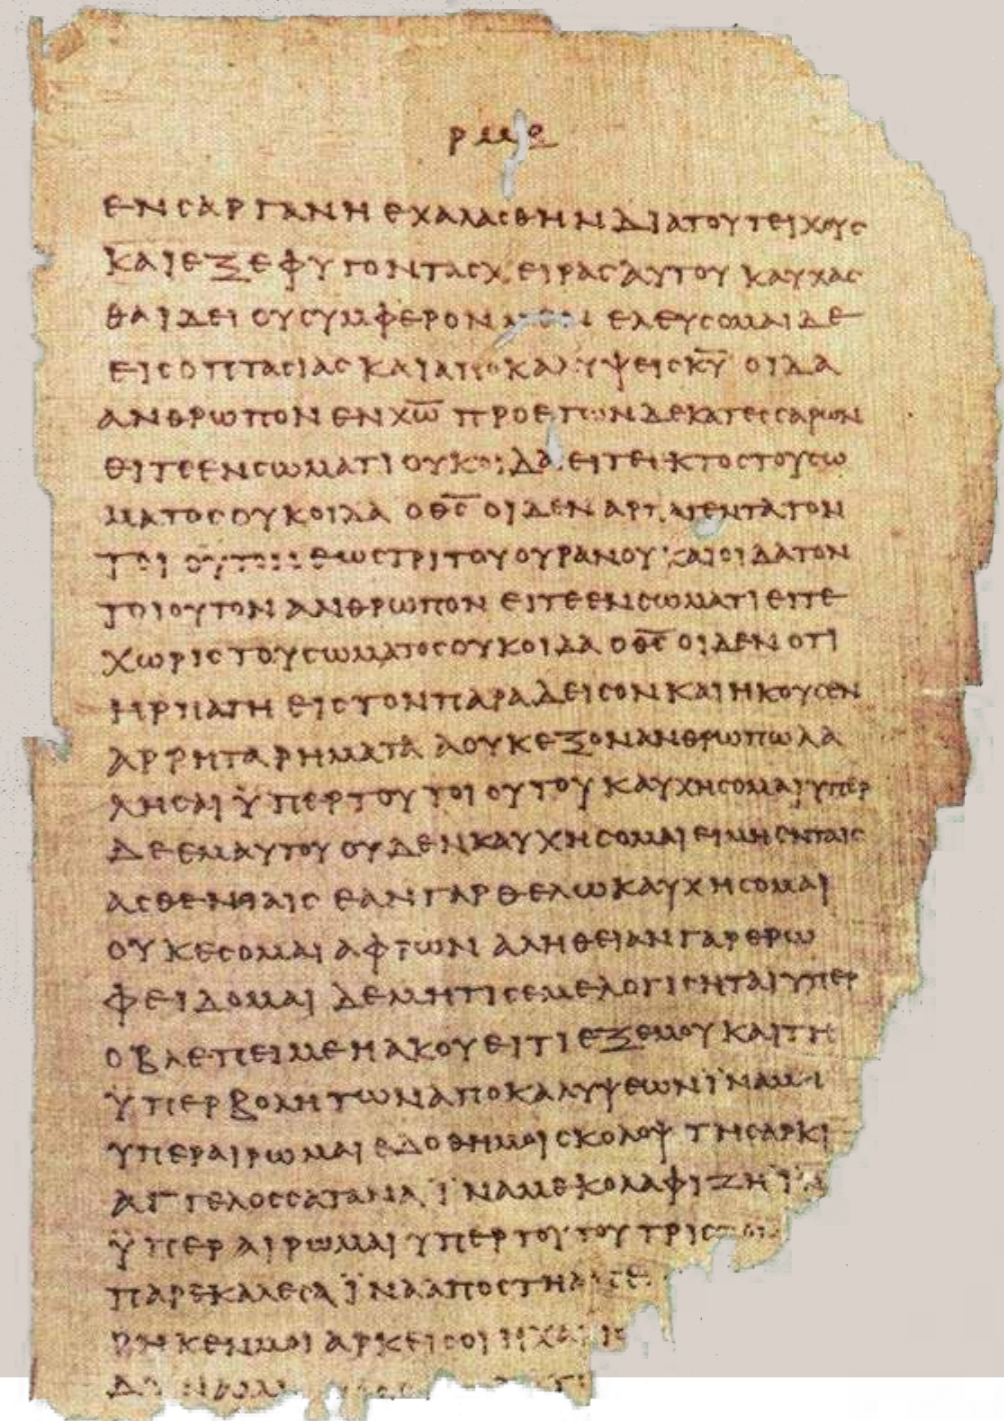 ΕΝ ϹΑΡΓΑΝΗ ΕΧΑΛΑϹΘΗΝ ΔΙΑ ΤΟΥ ΤΕΙΧΟΥϹ
ΚΑΙ ΕΞΕΦΥΓΟΝ ΤΑϹ ΧΕΙΡΑϹ ΑΥΤΟΥ ΚΑΥΧΑϹ
ΘΑΙ ΔΕΙ ΟΥ ϹΥΜΦΕΡΟΝ ΕΛΕΥϹΟΜΑΙ ΔΕ
ΕΙϹ ΟΠΤΑϹΙΑϹ ΚΑΙ ΑΠΟΚΑΛΥΨΕΙϹ Κ̅Υ̅ ΟΙΔΑ
ΑΝΘΡΩΠΟΝ ΕΝ Χ̅Ω̅ ΠΡΟ ΕΤΩΝ ΔΕΚΑΤΕϹϹΑΡΩΝ
ΕΙΤΕ ΕΝ ϹΩΜΑΤΙ ΟΥΚ ΟΙΔΑ ΕΙΤΕ ΕΚΤΟϹ ΤΟΥ ϹΩ
ΜΑΤΟϹ ΟΥΚ ΟΙΔΑ Ο Θ̅Ϲ̅ ΟΙΔΕΝ ΑΡΠΑΓΕΝΤΑ ΤΟΝ
ΤΟΙΟΥΤΟΝ ΕΩϹ ΤΡΙΤΟΥ ΟΥΡΑΝΟΥ ΚΑΙ ΟΙΔΑ ΤΟΝ
ΤΟΙΟΥΤΟΝ ΑΝΘΡΩΠΟΝ ΕΙΤΕ ΕΝ ϹΩΜΑΤΙ ΕΙΤΕ
ΧΩΡΙϹ ΤΟΥ ϹΩΜΑΤΟϹ ΟΥΚ ΟΙΔΑ Ο Θ̅Ϲ̅ ΟΙΔΕΝ ΟΤΙ
ΗΡΠΑΓΗ ΕΙϹ ΤΟΝ ΠΑΡΑΔΕΙϹΟΝ ΚΑΙ ΗΚΟΥϹΕΝ
ΑΡΡΗΤΑ ΡΗΜΑΤΑ Α ΟΥΚ ΕΞΟΝ ΑΝΘΡΩΠΩ ΛΑ
ΛΗϹΑΙ ΫΠΕΡ ΤΟΥ ΤΟΙΟΥΤΟΥ ΚΑΥΧΗϹΟΜΑΙ ΥΠΕΡ
ΔΕ ΕΜΑΥΤΟΥ ΟΥΔΕΝ ΚΑΥΧΗϹΟΜΑΙ ΕΙ ΜΗ ΕΝ ΤΑΙϹ
ΑϹΘΕΝΕΙΑΙϹ ΕΑΝ ΓΑΡ ΘΕΛΩ ΚΑΥΧΗϹΟΜΑΙ
ΟΥΚ ΕϹΟΜΑΙ ΑΦΡΩΝ ΑΛΗΘΕΙΑΝ ΓΑΡ ΕΡΩ
ΦΕΙΔΟΜΑΙ ΔΕ ΜΗ ΤΙϹ ΕΜΕ ΛΟΓΙϹΗΤΑΙ ΥΠΕΡ
Ο ΒΛΕΠΕΙ ΜΕ Η ΑΚΟΥΕΙ ΤΙ ΕΞ ΕΜΟΥ ΚΑΙ ΤΗ
ΫΠΕΡΒΟΛΗ ΤΩΝ ΑΠΟΚΑΛΥΨΕΩΝ ΪΝΑ ΜΗ
ΥΠΕΡΑΙΡΩΜΑΙ ΕΔΟΘΗ ΜΟΙ ϹΚΟΛΟΨ ΤΗ ϹΑΡΚΙ
ΑΓΓΕΛΟϹ ϹΑΤΑΝΑ ΪΝΑ ΜΕ ΚΟΛΑΦΙΖΗ
ΫΠΕΡΑΙΡΩΜΑΙ ΥΠΕΡ ΤΟΥΤΟΥ ΤΡΙϹ
ΠΑΡΕΚΑΛΕϹΑ ΪΝΑ ΑΠΟϹΤΗ
ΚΕΝ ΜΟΙ ΑΡΚΕΙ ϹΟΙ Η ΧΑΡΙϹ